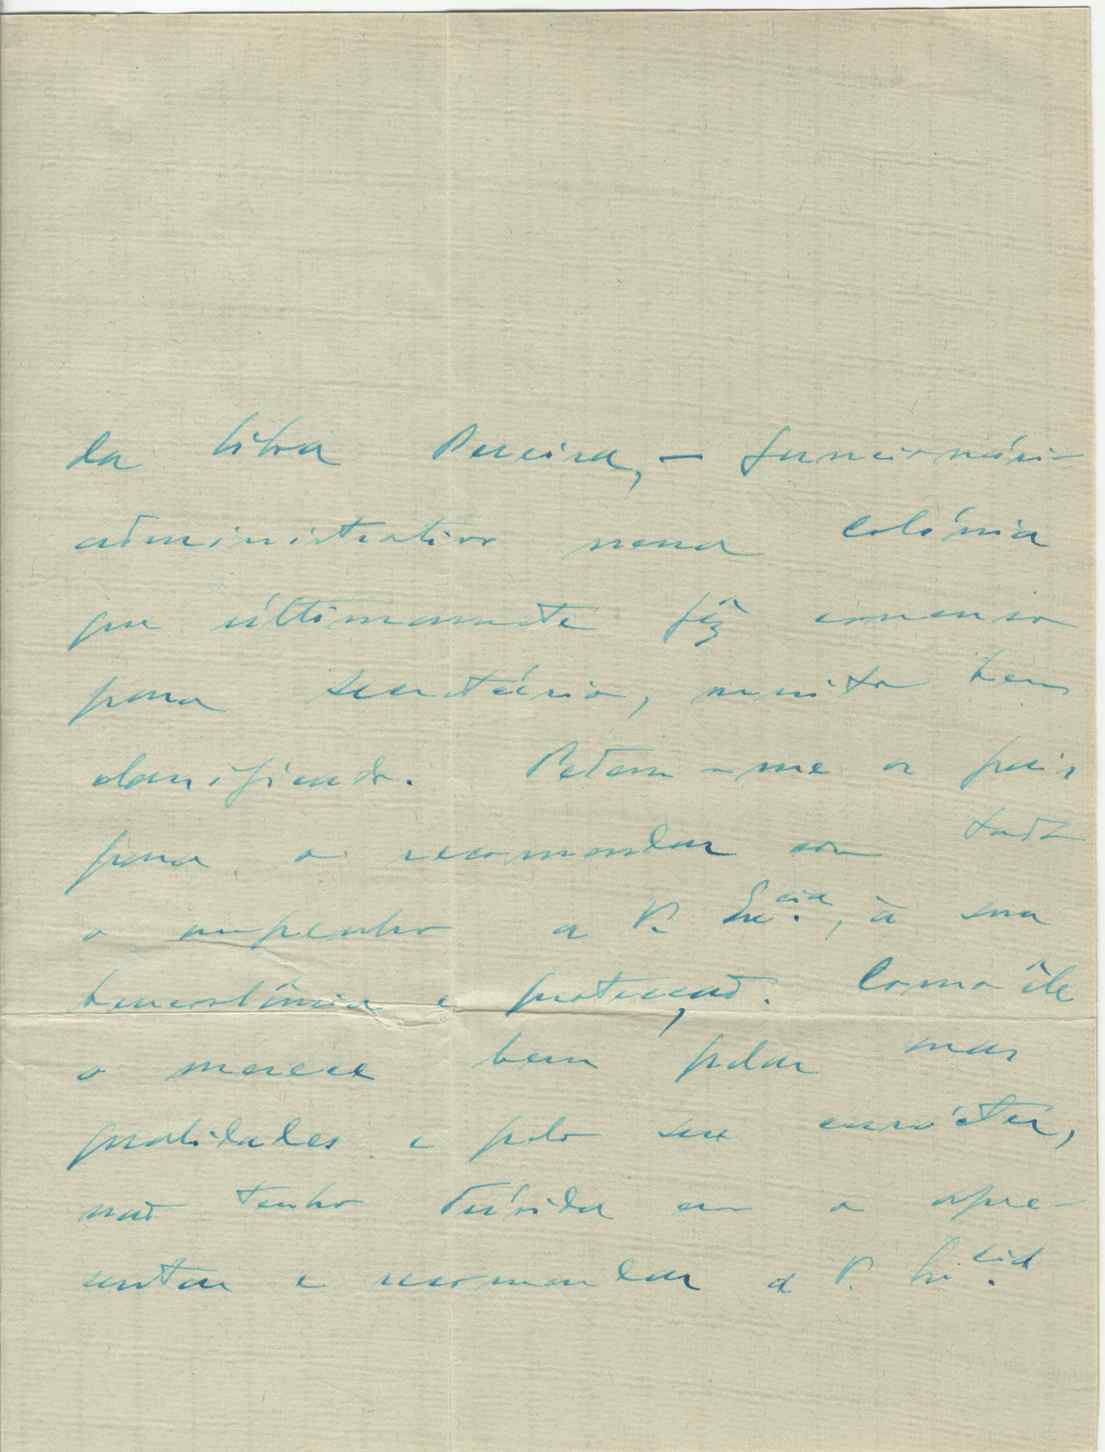 da Silva Pereira, — funcionário
administrativo nessa colónia
que últimamente fêz concurso
para secretário, muito bem
classificado. Pedem-me os pais
para o recomendar com todo
o empenho a V. Ex.cia, à sua
benevolência e protecção. Como êle
o merece bem pelas suas
qualidades e pelo seu carácter,
não tenho dúvida em o apre-
sentar e recomendar a V. Ex.cia